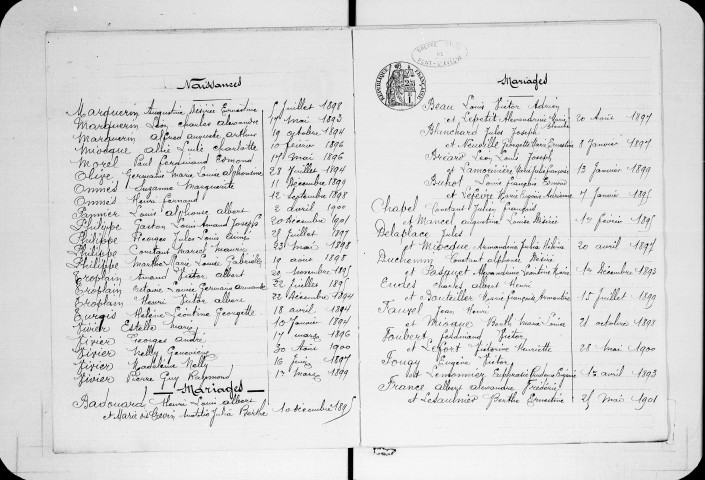 Naissances
Marguerin Augustine Désirée Ernestine 5 juillet 1898
Marguerin Léon Charles Alexandre 17 mai 1893
Marguerin Alfred Auguste Arthur 19 octobre 1894
Miocque Charlotte 10 février 1896
Morel Paul Ferdinand Edmond 17 mai 1896
Olive Germaine Marie Louise Alphonsine 28 juillet 1894
Onnés Suzanne Marguerite 11 Décembre 1899
Onnés Henri Fernand 12 septembre 1898
Pannier Louis Alphonse Albert 2 avril 1900
Philippe Gaston Louis Armand Joseph 20 Décembre 1901
Philippe Georges Jules Louis Aimé 28 juillet 1897
Philippe Constant Marcel Maurice 23 mai 1898
Philippe Marthe Marie Louise Gabrielle 19 août 1898
Troplain Armand Victor Albert 20 novembre 1895
Troplain Octavie Louise Germaine 22 juillet 1895
Troplain Henri Victor Albert 22 Décembre 1894
Turgis Hélène Léontine Georgette 18 avril 1894
Vivier Estelle Marie 10 Janvier 1894
Vivier Georges André 17 mars 1896
Vivier Nelly Geneviève 30 Août 1900
Vivier Madeleine Nelly 16 juin 1897
Vivier Pierre Guy Raymond 17 mars 1899
Mariages
Badouard Henri Louis Albert
et Marie Julia Berthe 10 décembre 1895
RÉPUBLIQUE FRANÇAISE
Mariages
Beau Louis Victor Adrien
et Lepetit Alexandrine Marie 20 Août 1897
Blanchard Jules Joseph
et Neuville Georgette Marie Ernestine 8 janvier 1897
Bréard Léon Louis Joseph
et Lamorinière Marie Julie Françoise 13 Janvier 1899
Buhot Louis François Edmond
et Lefèvre Marie Eugénie 7 Janvier 1895
Chapel Constant Julien François
et Mancel Augustine Louise Désirée 14 février 1895
Delaplace Jules
et Miocque Armandine Julia Hélène 20 avril 1897
Duchemin Constant Alphonse Désiré
et Pasquet Alexandrine Léontine Marie 1er Décembre 1893
Eudes Charles Albert Henri
et Bouteiller Marie Françoise 15 juillet 1899
Fauvel Jean Henri
et Miocque Berthe Marie Louise 21 octobre 1898
Foubert Ferdinand Victor
et Lefort Antoinette Henriette 28 Mai 1900
Fouay Eugène Victor
et Lemonnier Euphrasie Eugénie 12 avril 1893
France Albert Alexandre Frédéric
et Lesaulnier Berthe Ernestine 25 Mai 1901